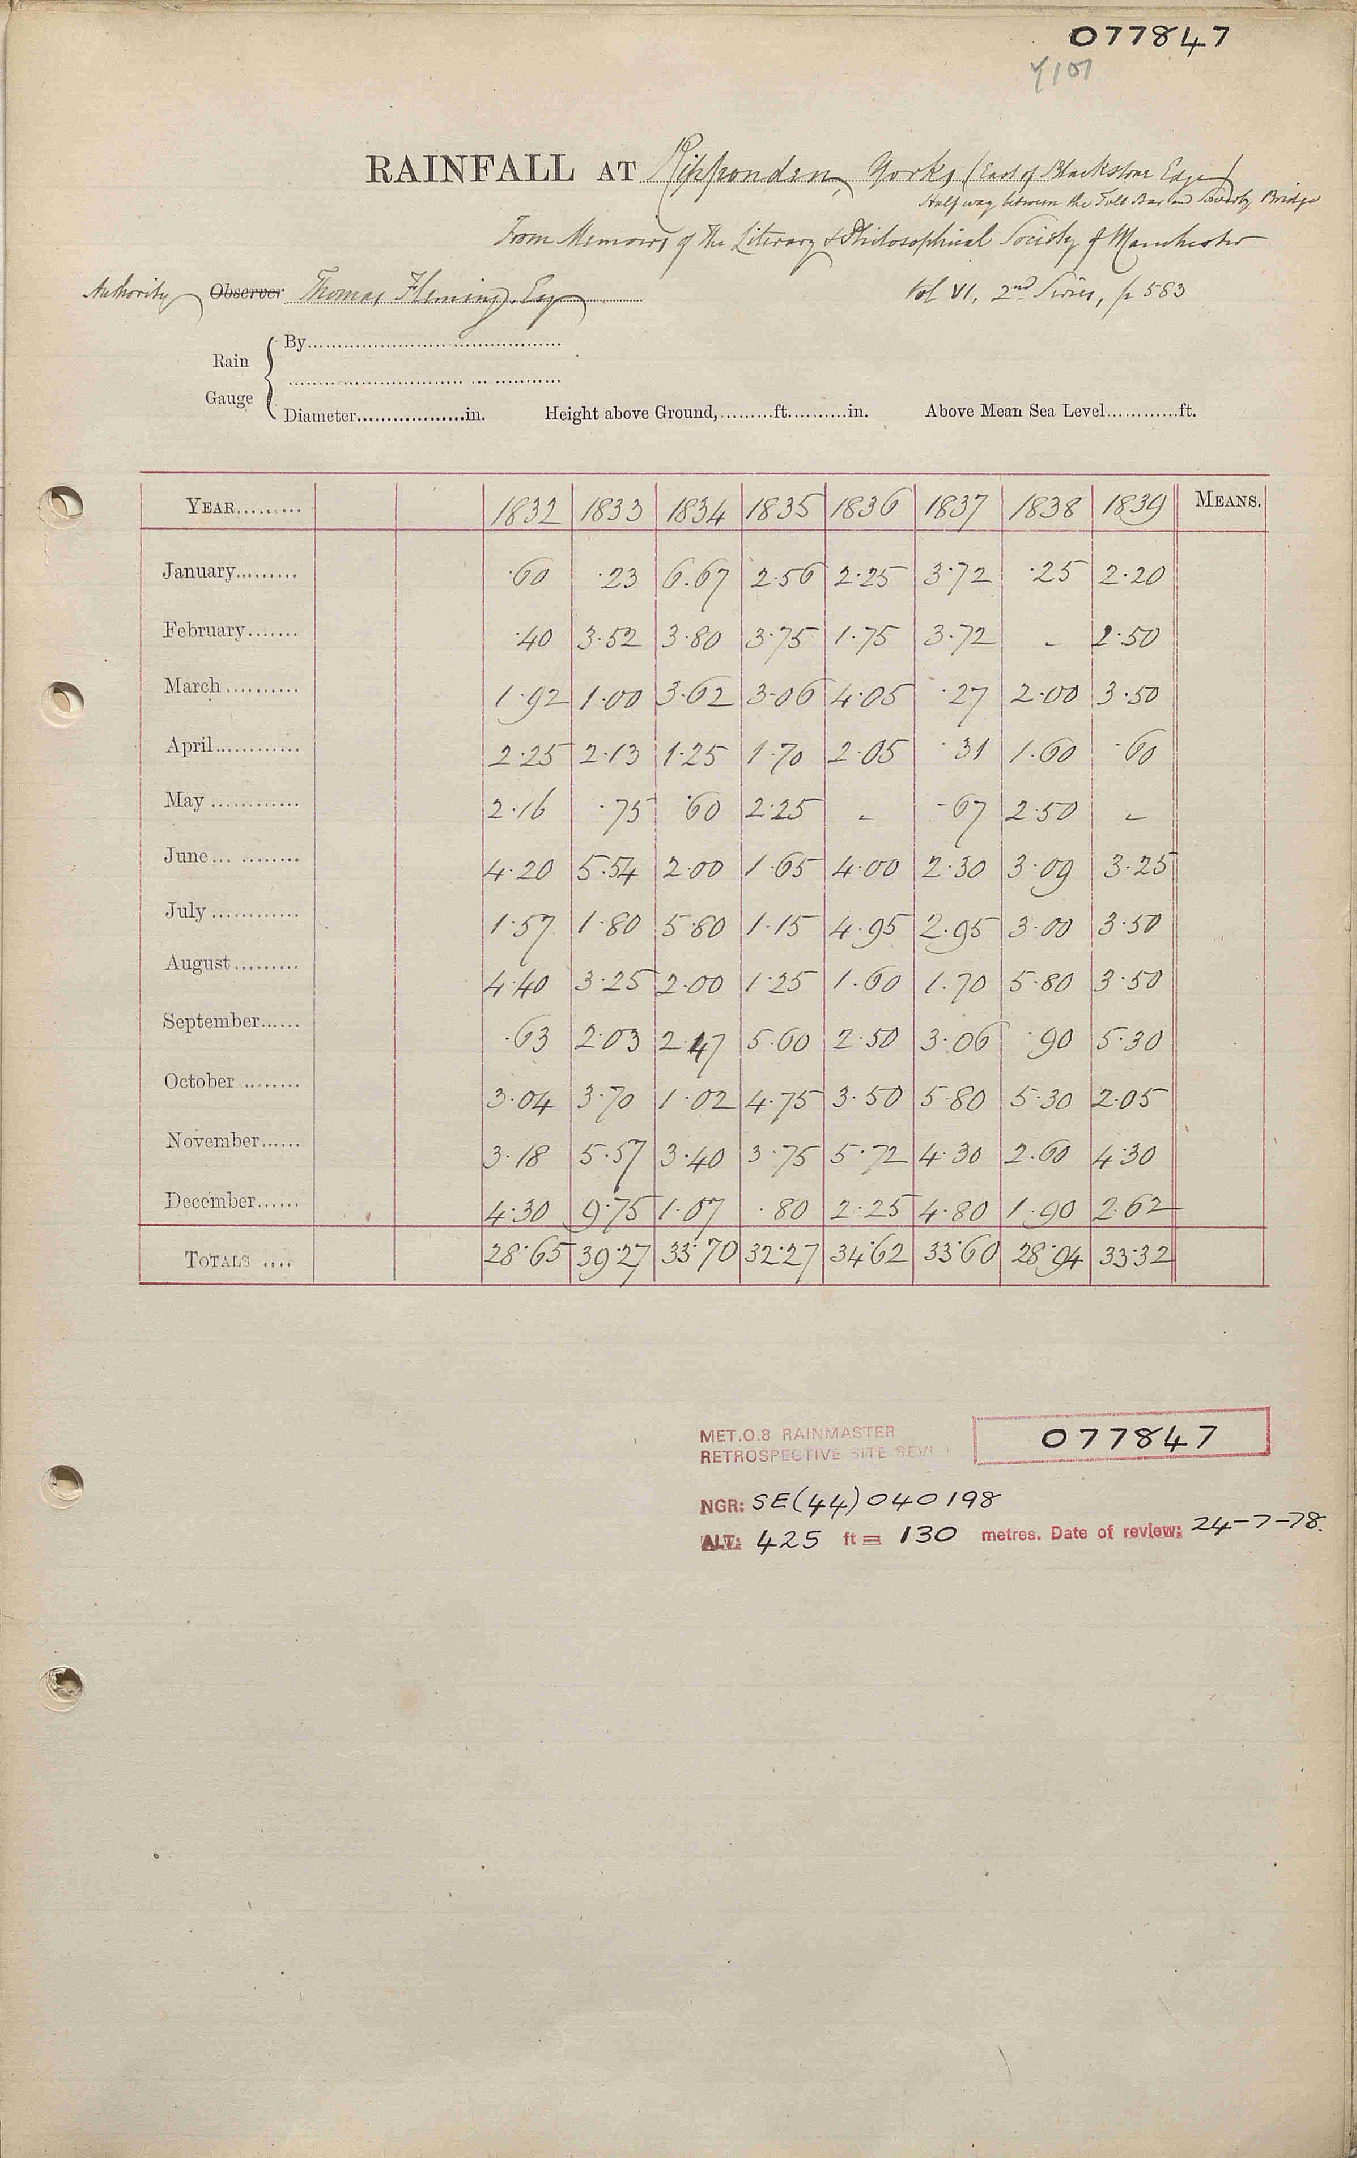 077847
RAINFALL AT Ripponden, Yorks (East of Blackstone Edge)
Half way between the Toll Bar and Sowerby Bridge
From Memoirs of the Literary & Philosophical Society of Manchester
Authority Observer Thomas Fleming, Esq Vol VI, 2nd Series, p 583
Rain Gauge
By
Diameter in. Height above Ground, ft. in. Above Mean Sea Level ft.
YEAR 1832 1833 1834 1835 1836 1837 1838 1839 MEANS.
January ·60 ·23 6·67 2·56 2·25 3·72 ·25 2·20
February ·40 3·52 3·80 3·75 1·75 3·72 - 2·50
March 1·92 1·00 3·62 3·06 4·05 ·27 2·00 3·50
April 2·25 2·13 1·25 1·70 2·05 ·31 1·60 ·60
May 2·16 ·75 ·60 2·25 - ·67 2·50 -
June 4·20 5·54 2·00 1·65 4·00 2·30 3·09 3·25
July 1·57 1·80 5·80 1·15 4·95 2·95 3·00 3·50
August 4·40 3·25 2·00 1·25 1·60 1·70 5·80 3·50
September ·63 2·03 2·47 5·60 2·50 3·06 ·90 5·30
October 3·04 3·70 1·02 4·75 3·50 5·80 5·30 2·05
November 3·18 5·57 3·40 3·75 5·72 4·30 2·60 4·30
December 4·30 9·75 1·07 ·80 2·25 4·80 1·90 2·62
TOTALS 28·65 39·27 33·70 32·27 34·62 33·60 28·94 33·32
MET.O.8 RAINMASTER
RETROSPECTIVE SITE REVI
077847
NGR: SE(44)040198
ALT: 425 ft = 130 metres. Date of review: 24-7-78.